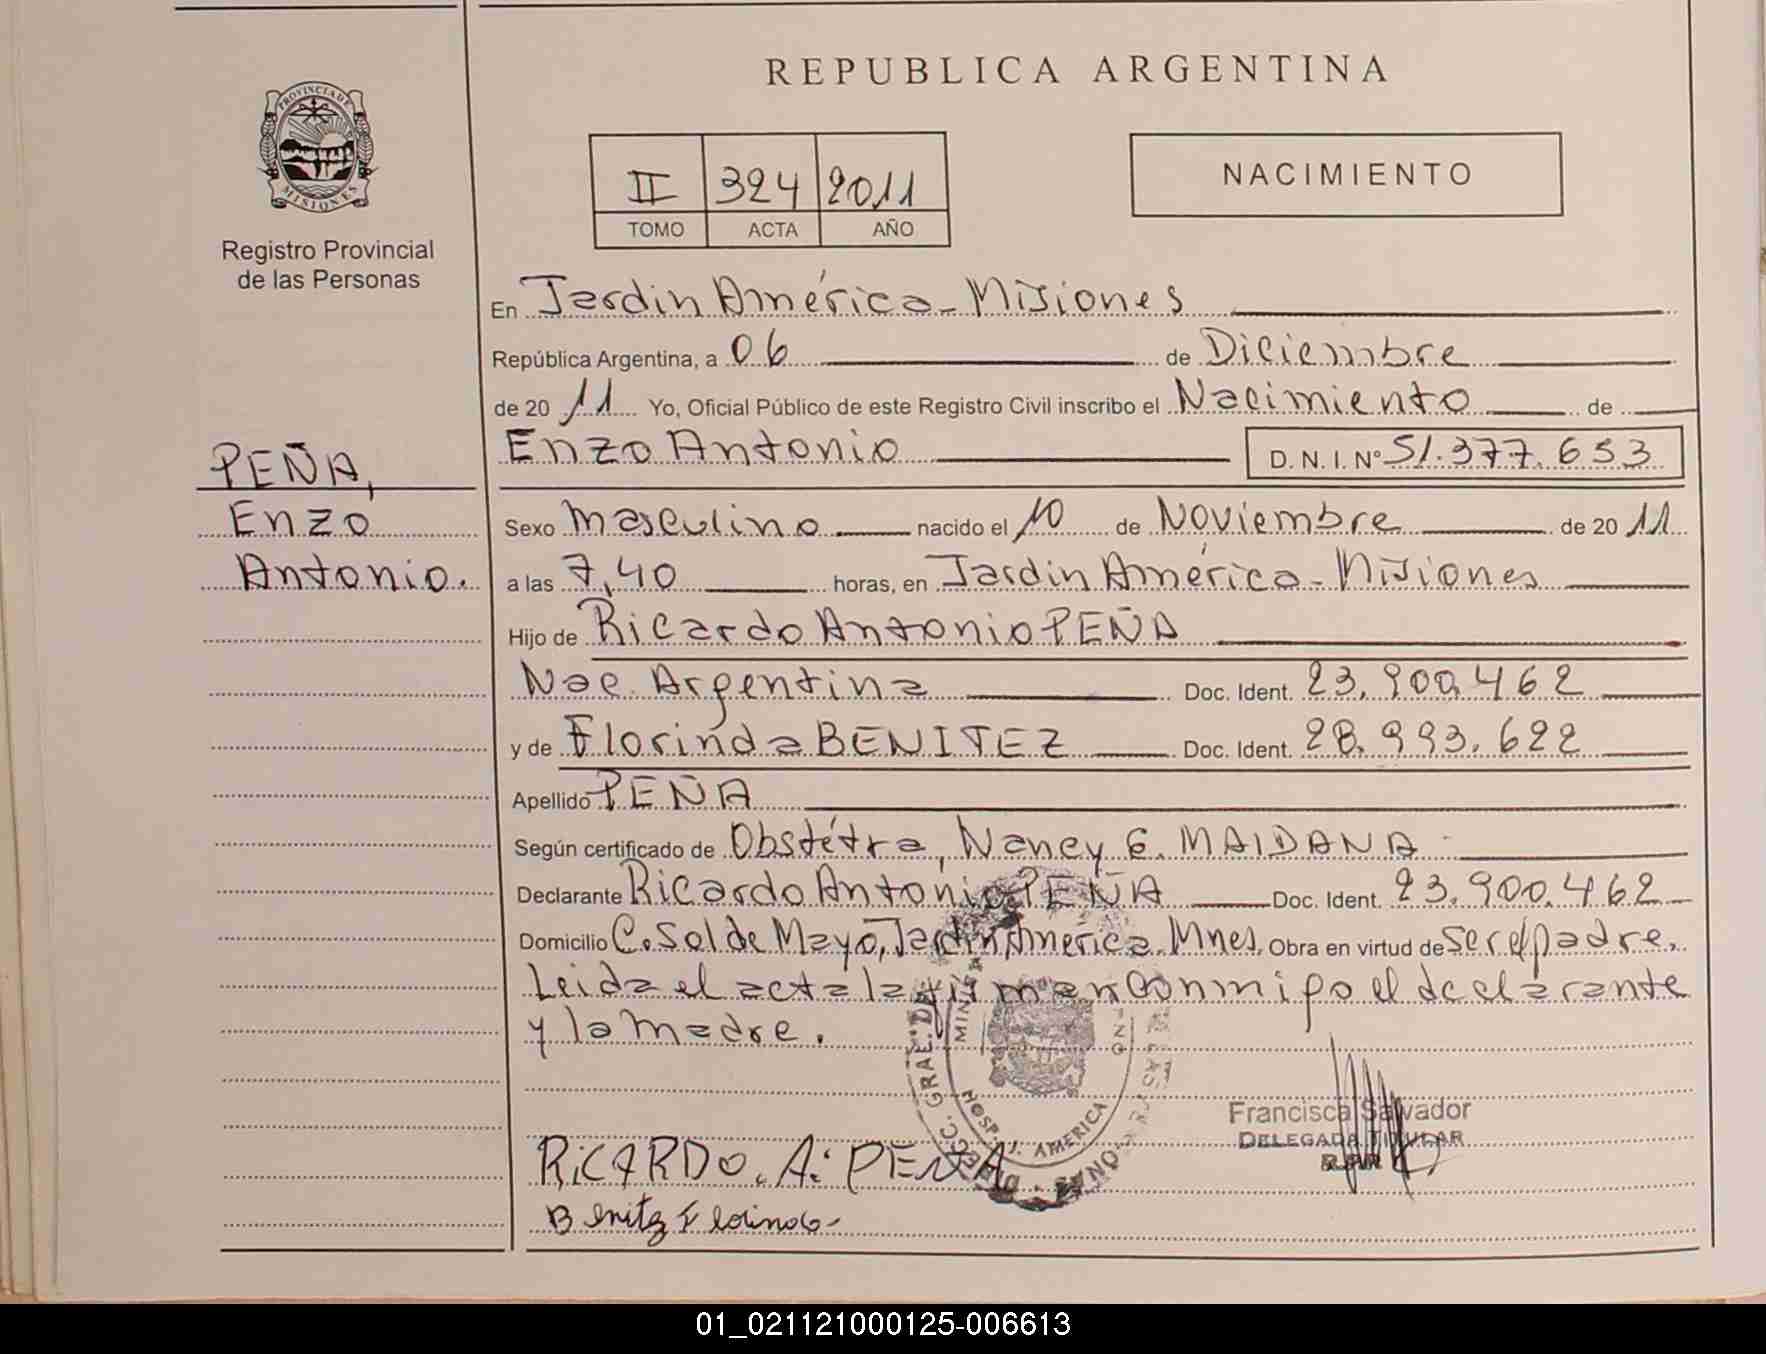 REPUBLICA ARGENTINA
PROVINCIA DE
MISIONES
Registro Provincial
de las Personas
II 324 2011
TOMO ACTA AÑO
NACIMIENTO
En Jardin América - Misiones
República Argentina, a 06 de Diciembre
de 20 11 Yo, Oficial Público de este Registro Civil inscribo el Nacimiento de
Enzo Antonio D. N. I. Nº 51.377.653
PEÑA,
Enzo
Antonio.
Sexo masculino nacido el 10 de Noviembre de 20 11
a las 7,40 horas, en Jardin América - Misiones
Hijo de Ricardo Antonio PEÑA
Nac. Argentina Doc. Ident. 23.900.462
y de Florinda BENITEZ Doc. Ident. 28.993.622
Apellido PEÑA
Según certificado de Obstétra, Nancy E. MAIDANA
Declarante Ricardo Antonio PEÑA Doc. Ident. 23.900.462
Domicilio C. Sol de Mayo, Jardin America. Mnes. Obra en virtud de ser el padre.
Leida el acta la firman conmigo el declarante
y la madre.
HOSP. J. AMERICA
Francisca Salvador
DELEGADA TITULAR
RICARDO. A. PEÑA
Benitz Florinda-
01_021121000125-006613